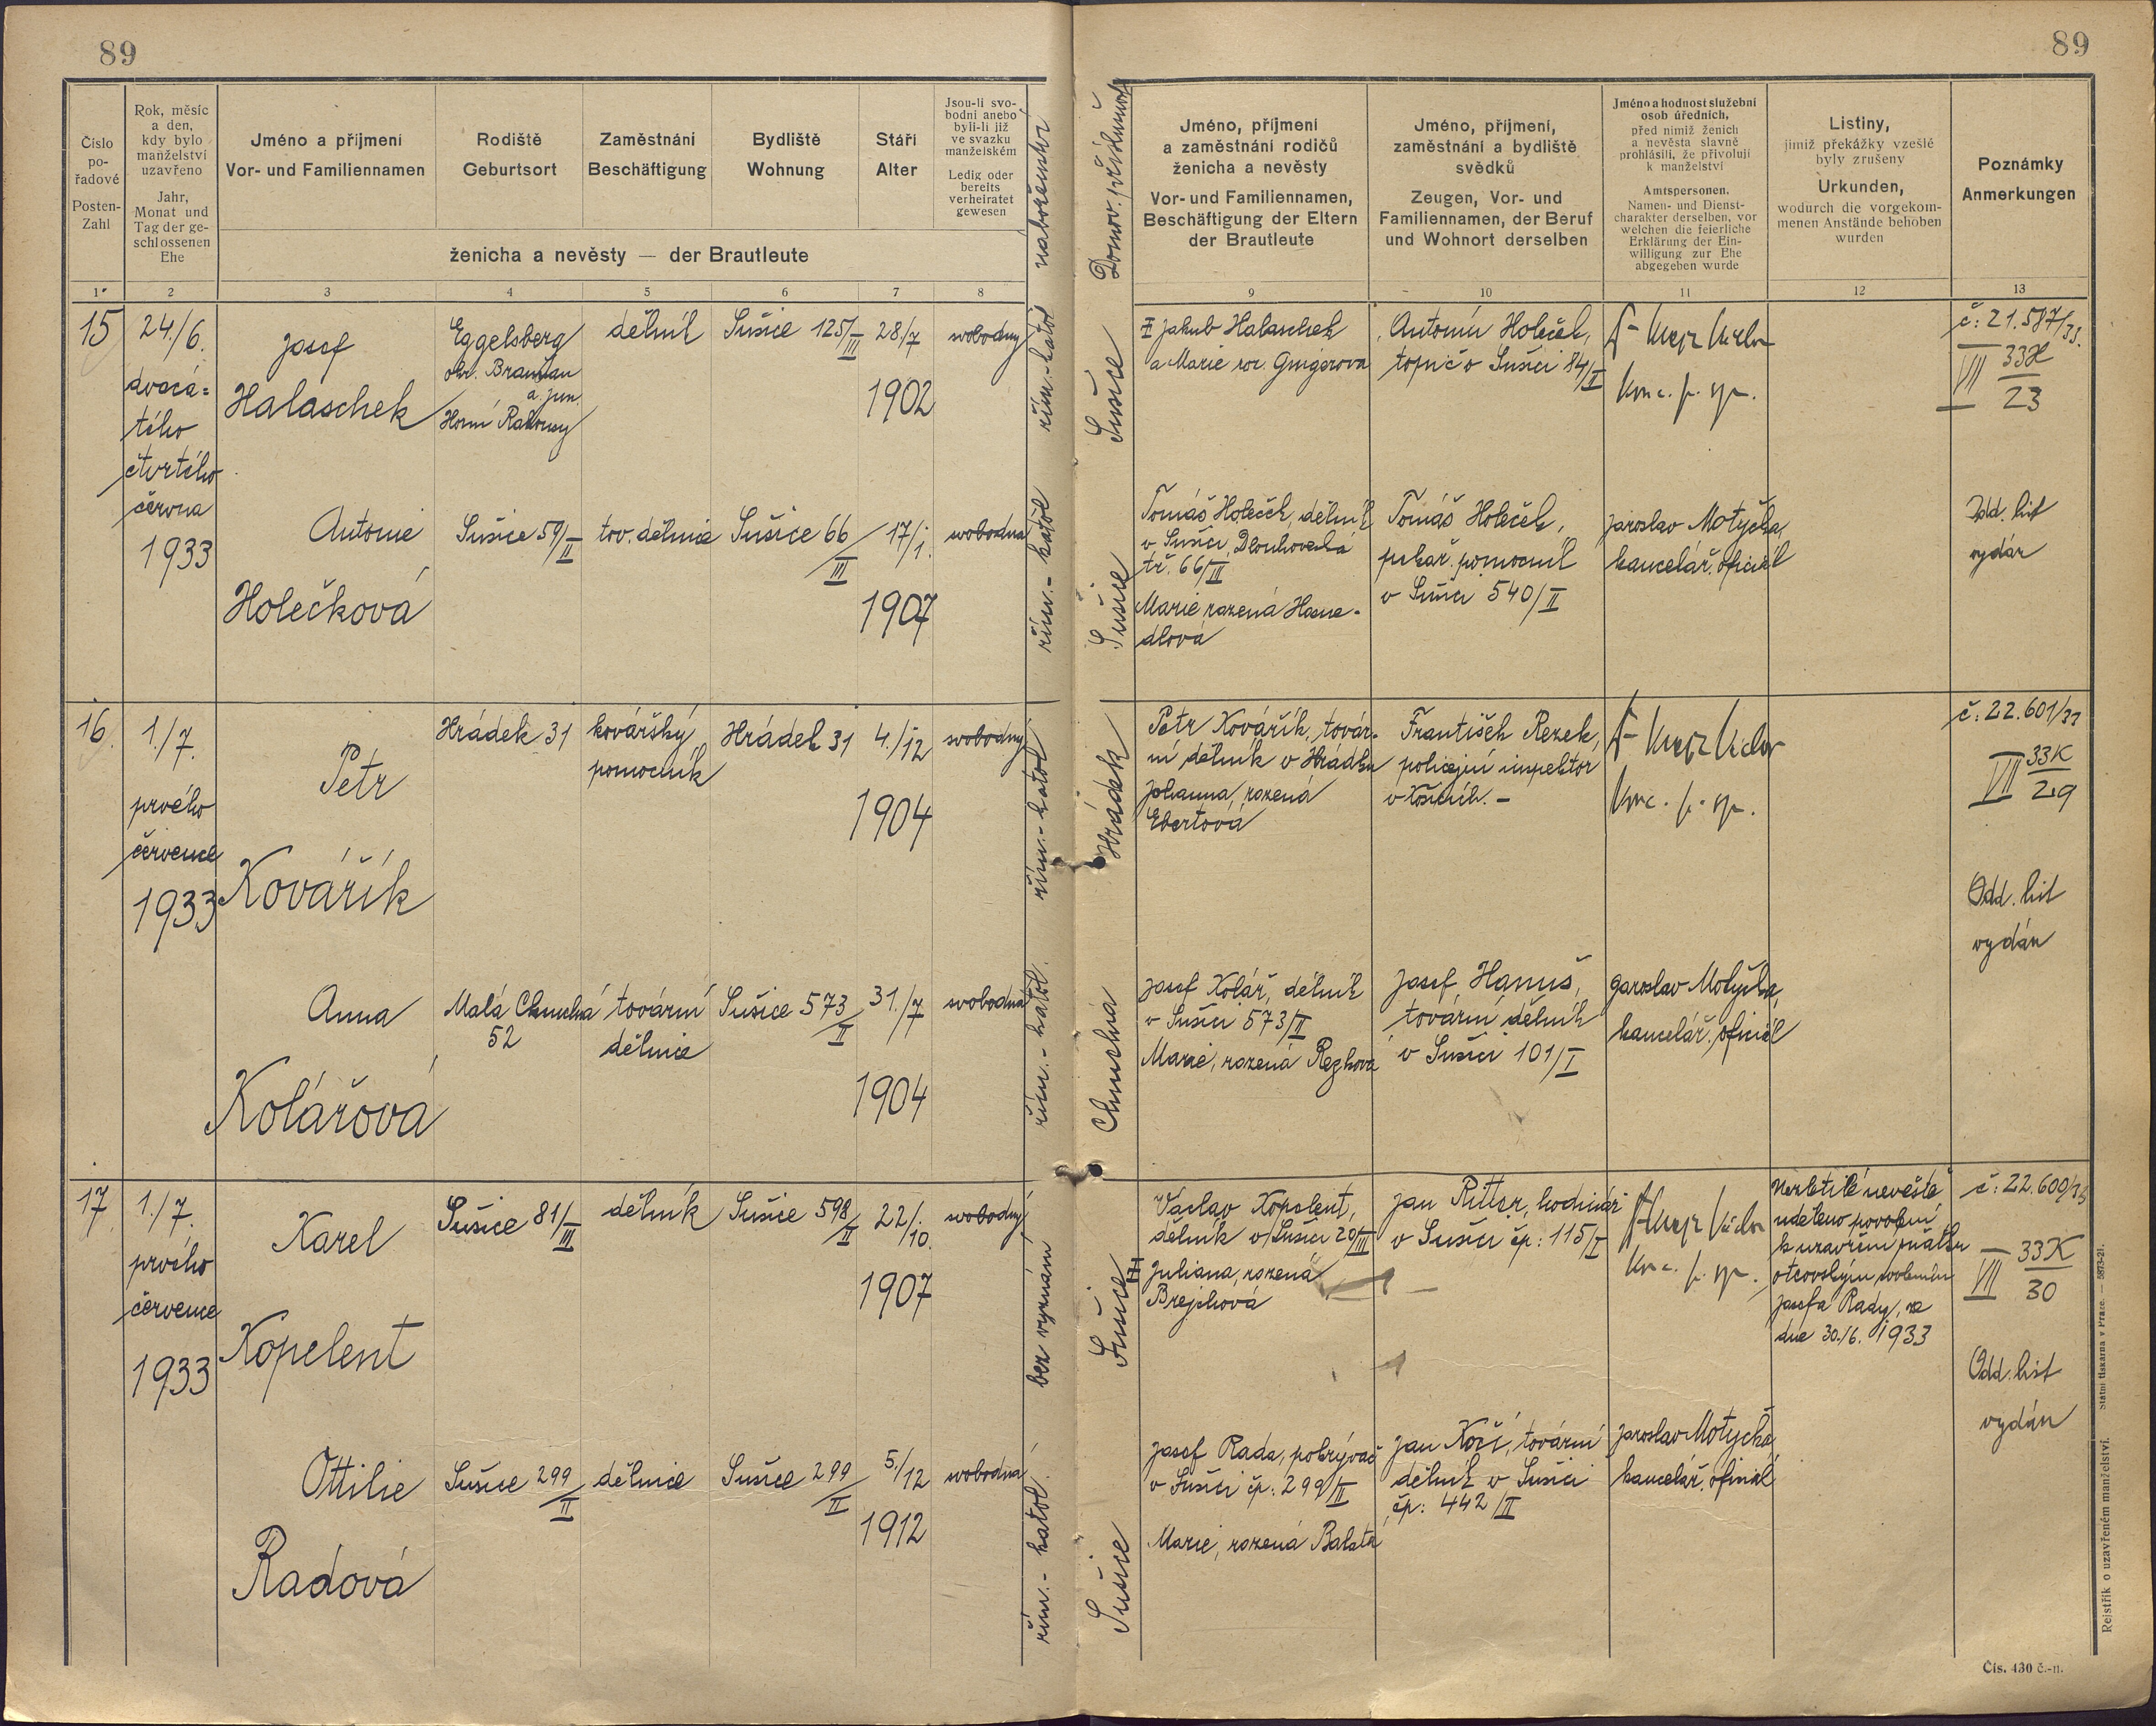 89
89
Číslo
po-
řadové
Posten-
Zahl
Rok, měsíc
a den,
kdy bylo
manželství
uzavřeno
Jahr,
Monat und
Tag der ge-
schlossenen
Ehe
Jméno a příjmení
Vor- und Familiennamen
Rodiště
Geburtsort
Zaměstnání
Beschäftigung
Bydliště
Wohnung
Stáří
Alter
Jsou-li svo-
bodni anebo
byli-li již
ve svazku
manželském
Ledig oder
bereits
verheiratet
gewesen
ženicha a nevěsty — der Brautleute
náboženství
Domov. příslušnost
Jméno, příjmení
a zaměstnání rodičů
ženicha a nevěsty
Vor- und Familiennamen,
Beschäftigung der Eltern
der Brautleute
Jméno, příjmení,
zaměstnání a bydliště
svědků
Zeugen, Vor- und
Familiennamen, der Beruf
und Wohnort derselben
Jméno a hodnost služební
osob úředních,
před nimiž ženich
a nevěsta slavně
prohlásili, že přivolují
k manželství
Amtspersonen,
Namen- und Dienst-
charakter derselben, vor
welchen die feierliche
Erklärung der Ein-
willigung zur Ehe
abgegeben wurde
Listiny,
jimiž překážky vzešlé
byly zrušeny
Urkunden,
wodurch die vorgekom-
menen Anstände behoben
wurden
Poznámky
Anmerkungen
1 2 3 4 5 6 7 8 9 10 11 12 13
15
24./6.
dvacá-
tého
čtvrtého
června
1933
Josef
Halaschek
Eggelsberg
okr. Braunau
a. Jnn.
Horní Rakousy
dělník
Sušice 125/III
28./7
1902
svobodný
řím.-katol
Sušice
Jakub Halaschek
a Marie roz.
Antonín Holeček,
topič v Sušici 84/I
č: 21.587/33.
VII 33H
23
Antonie
Holečková
Sušice 59/II
tov. dělnice
Sušice 66/III
17/1.
1907
svobodná
řím.-katol
Sušice
Tomáš Holeček, dělník
v Sušici, Dlouhoveská
tř. 66/III
Marie rozená Hosne-
dlová
Tomáš Holeček,
pekař. pomocník
v Sušici 540/II
Jaroslav Motyčka,
kancelář. oficiál
Odd. list
vydán
16
1./7.
prvého
července
1933
Petr
Kovářík
Hrádek 31
kovářský
pomocník
Hrádek 31
4./12
1904
svobodný
řím.-katol
Hrádek
Petr Kovářík, továr-
ní dělník v Hrádku
Johanna, rozená
Ebertová
František Rezek,
policejní inspektor
v Košicích. -
č: 22.601/33
VII 33K
29
Odd. list
vydán
Anna
Kolářová
Malá Chmelná
52
tovární
dělnice
Sušice 573/II
31./7
1904
svobodná
řím.-katol.
Chmelná
Josef Kolář, dělník
v Sušici 573/II
Marie, rozená Rezková
Josef Hanuš,
tovární dělník
v Sušici 101/I
Jaroslav Motyčka,
kancelář. oficiál
17
1./7.
prvého
července
1933
Karel
Kopelent
Sušice 81/III
dělník
Sušice 598/II
22/10.
1907
svobodný
bez vyznání
Sušice III
Václav Kopelent,
dělník v Sušici 20/III
Juliana, rozená
Brejchová
Jan Ritter, hodinář
v Sušici čp: 115/I
Nezletilé nevěstě
uděleno povolení
k uzavření sňatku
otcovským svolením
Josefa Rady, ze
dne 30./6. 1933
č: 22.600/33
VII 33K
30
Odd. list
vydán
Ottilie
Radová
Sušice 299/II
dělnice
Sušice 299/II
5./12
1912
svobodná
řím.-katol.
Sušice
Josef Rada, pokrývač
v Sušici čp: 299/II
Marie, rozená Balatá
Jan Kočí, tovární
dělník v Sušici
čp: 442/II
Jaroslav Motyčka,
kancelář. oficiál
Rejstřík o uzavřeném manželství. Státní tiskárna v Praze. — 5873-21.
Čís. 430 č.-n.